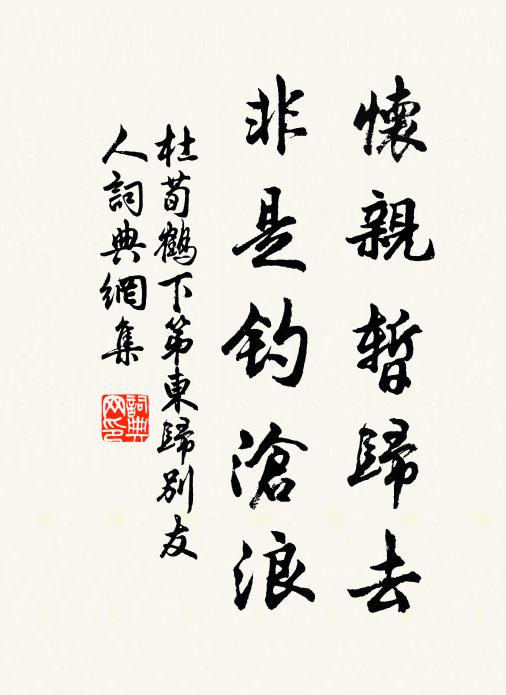 懷親暫歸去
非是釣滄浪
杜荀鶴下第東歸別友
人詞典網集
詞典
网印